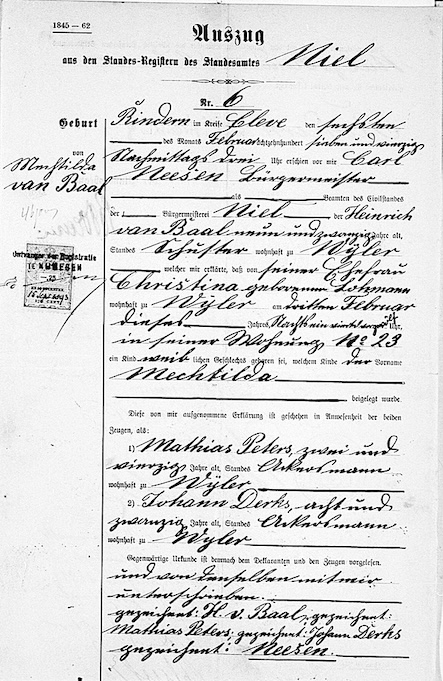 1845 — 62
Auszug
aus den Standes-Registern des Standesamtes Niel
Nr. 6
Geburt
von
Mechtilda
van Baal
Rindern im Kreise Cleve den sechsten
des Monats Februar achtzehnhundert sieben und vierzig
Nachmittags drei Uhr erschien vor mir Carl
Neesen Bürgermeister
als Beamten des Civilstandes
der Bürgermeisterei Niel der Heinrich
van Baal neun und zwanzig Jahre alt,
Standes Schuster wohnhaft zu Wyler
welcher mir erklärte, daß von seiner Ehefrau
Christina geborenen Lohmann
wohnhaft zu Wyler am dritten Februar
dieses Jahres, Nachts ein viertel vor Uhr,
in seiner Wohnung No 23
ein Kind weib lichen Geschlechts geboren sei, welchem Kinde der Vorname
Mechtilda
beigelegt wurde.
Diese von mir aufgenommene Erklärung ist geschehen in Anwesenheit der beiden
Zeugen, als:
1) Mathias Peters, zwei und
vierzig Jahre alt, Standes Ackersmann
wohnhaft zu Wyler
2) Johann Derks, acht und
zwanzig Jahre alt, Standes Ackersmann
wohnhaft zu Wyler
Gegenwärtige Urkunde ist demnach dem Deklaranten und den Zeugen vorgelesen
und von denselben mit mir
unterschrieben.
gezeichnet: H. v. Baal; gezeichnet:
Mathias Peters; gezeichnet: Johann Derks
gezeichnet: Neesen.
Ontvanger der Registratie
te NIJMEGEN